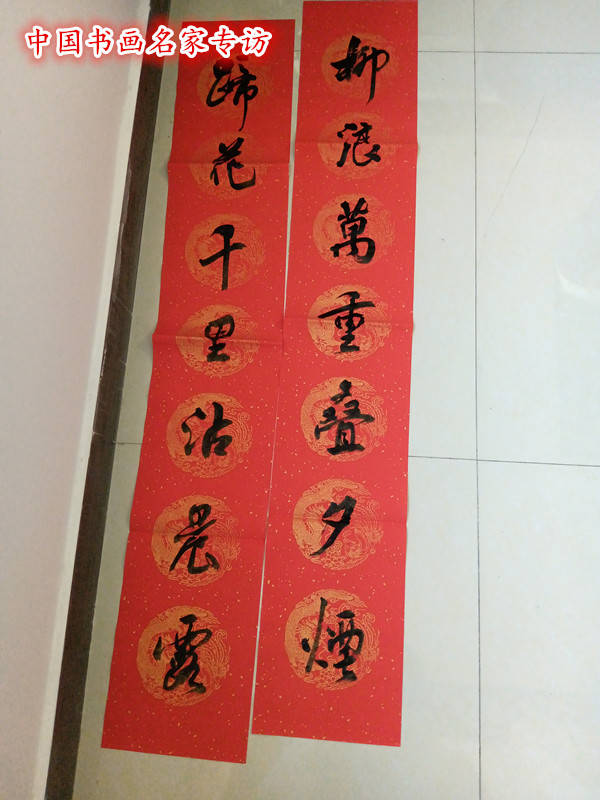 中国书画名家专访
柳浪萬重叠夕煙
蹄花千里沾晨露